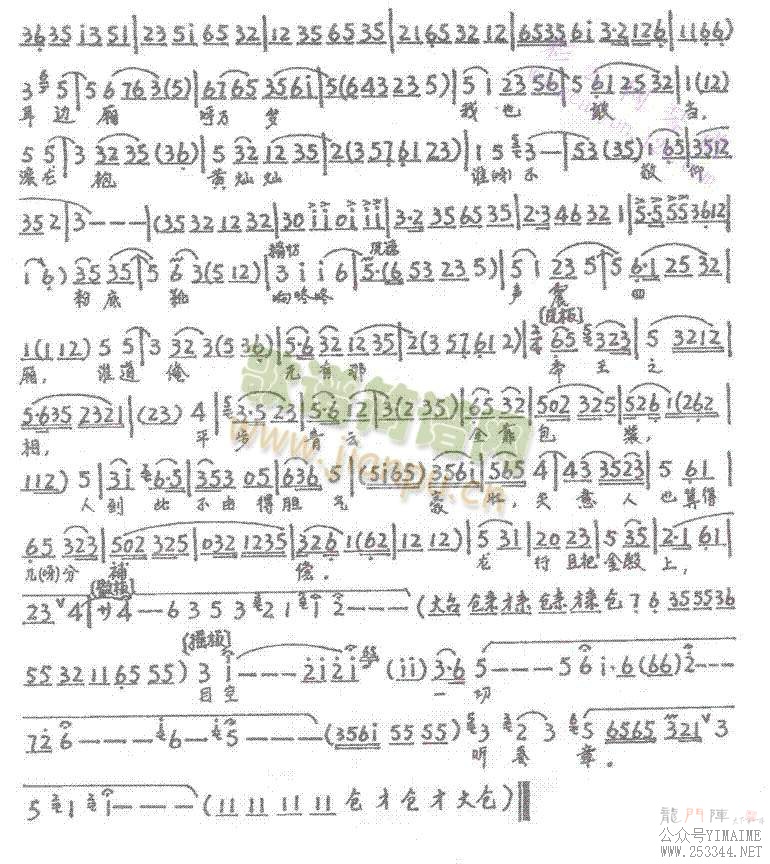 3635 i351 | 235i 6532 | 1235 6535 | 2165 3212 | 6535 6i 3·2 126 | 1166)
3 5 5 | 5 6 763 (5) | 6765 356i | 5 (643 235) | 5 i 23 56 | 5 61 25 32 | 1 (12)
耳边厢 呼万岁 我也敢当,
5 5 | 3 32 35 (36) | 5 32 12 35 | 2 (357 61 23) | 1 5 3 — | 53 (35) i 65 | 3512
滚龙袍 黄灿灿 谁(呀)不敬仰
352 | 3 — — — | (35 32 12 32 | 30 ii 0i ii | 3·2 35 65 35 | 2·3 46 32 1 | 5·5 55 3612
i 6) 35 35 | 5 6 3 (5 12) | 3 i i 6 | 5·(6 53 235) | 5 i 23 5 | 5 6·1 25 32
粉底靴 响咚咚 声震四
1 (1 12) 5 5 | 3 32 3 (5 36) | 5·6 32 12 35 | 2 (357 612) | 65 323 | 5 3212
厢, 谁道俺 无有那 帝王之
5·635 2321 | (23) 4 | 3·5 23 | 5·6 12 | 3 (2 35) | 65 32 | 502 325 | 526 1 (262
相, 平步青云 金靠包装,
112) 5 | 3i 6·5 | 353 05 | 636 5 | (5165) 356i | 565 4 | 43 3523 | 5 61
人到此不由得胆气豪壮, 失意人也算得
65 323 | 502 325 | 032 1235 | 326 1 (62 | 12 12) | 5 31 | 20 23 | 5 35 | 2·1 61
几(呀)分补偿。 龙行且把金殿上,
23 4 | 4 — — 6 3 5 3 2 1 1 2 — — — (大台 仓来才来 仓来才来仓 7 6 35 55 36
55 32 11 65 55) 3 i — — — 2 i 2 i (ii) 3·6 5 — — — 5 6 i·6 (66) 2 — — —
[摇板]
目空 一切
7 2 6 — — — — 6 — 5 — — — — (356i 55 55) 3 2 3 5 6565 321 3
听奏章。
5 1 i — — — — (11 11 11 11 仓才仓才大仓)
歌谱简谱网
www.jianpu.cn
龍門陣
公众号YIMAIME
www.253344.NET